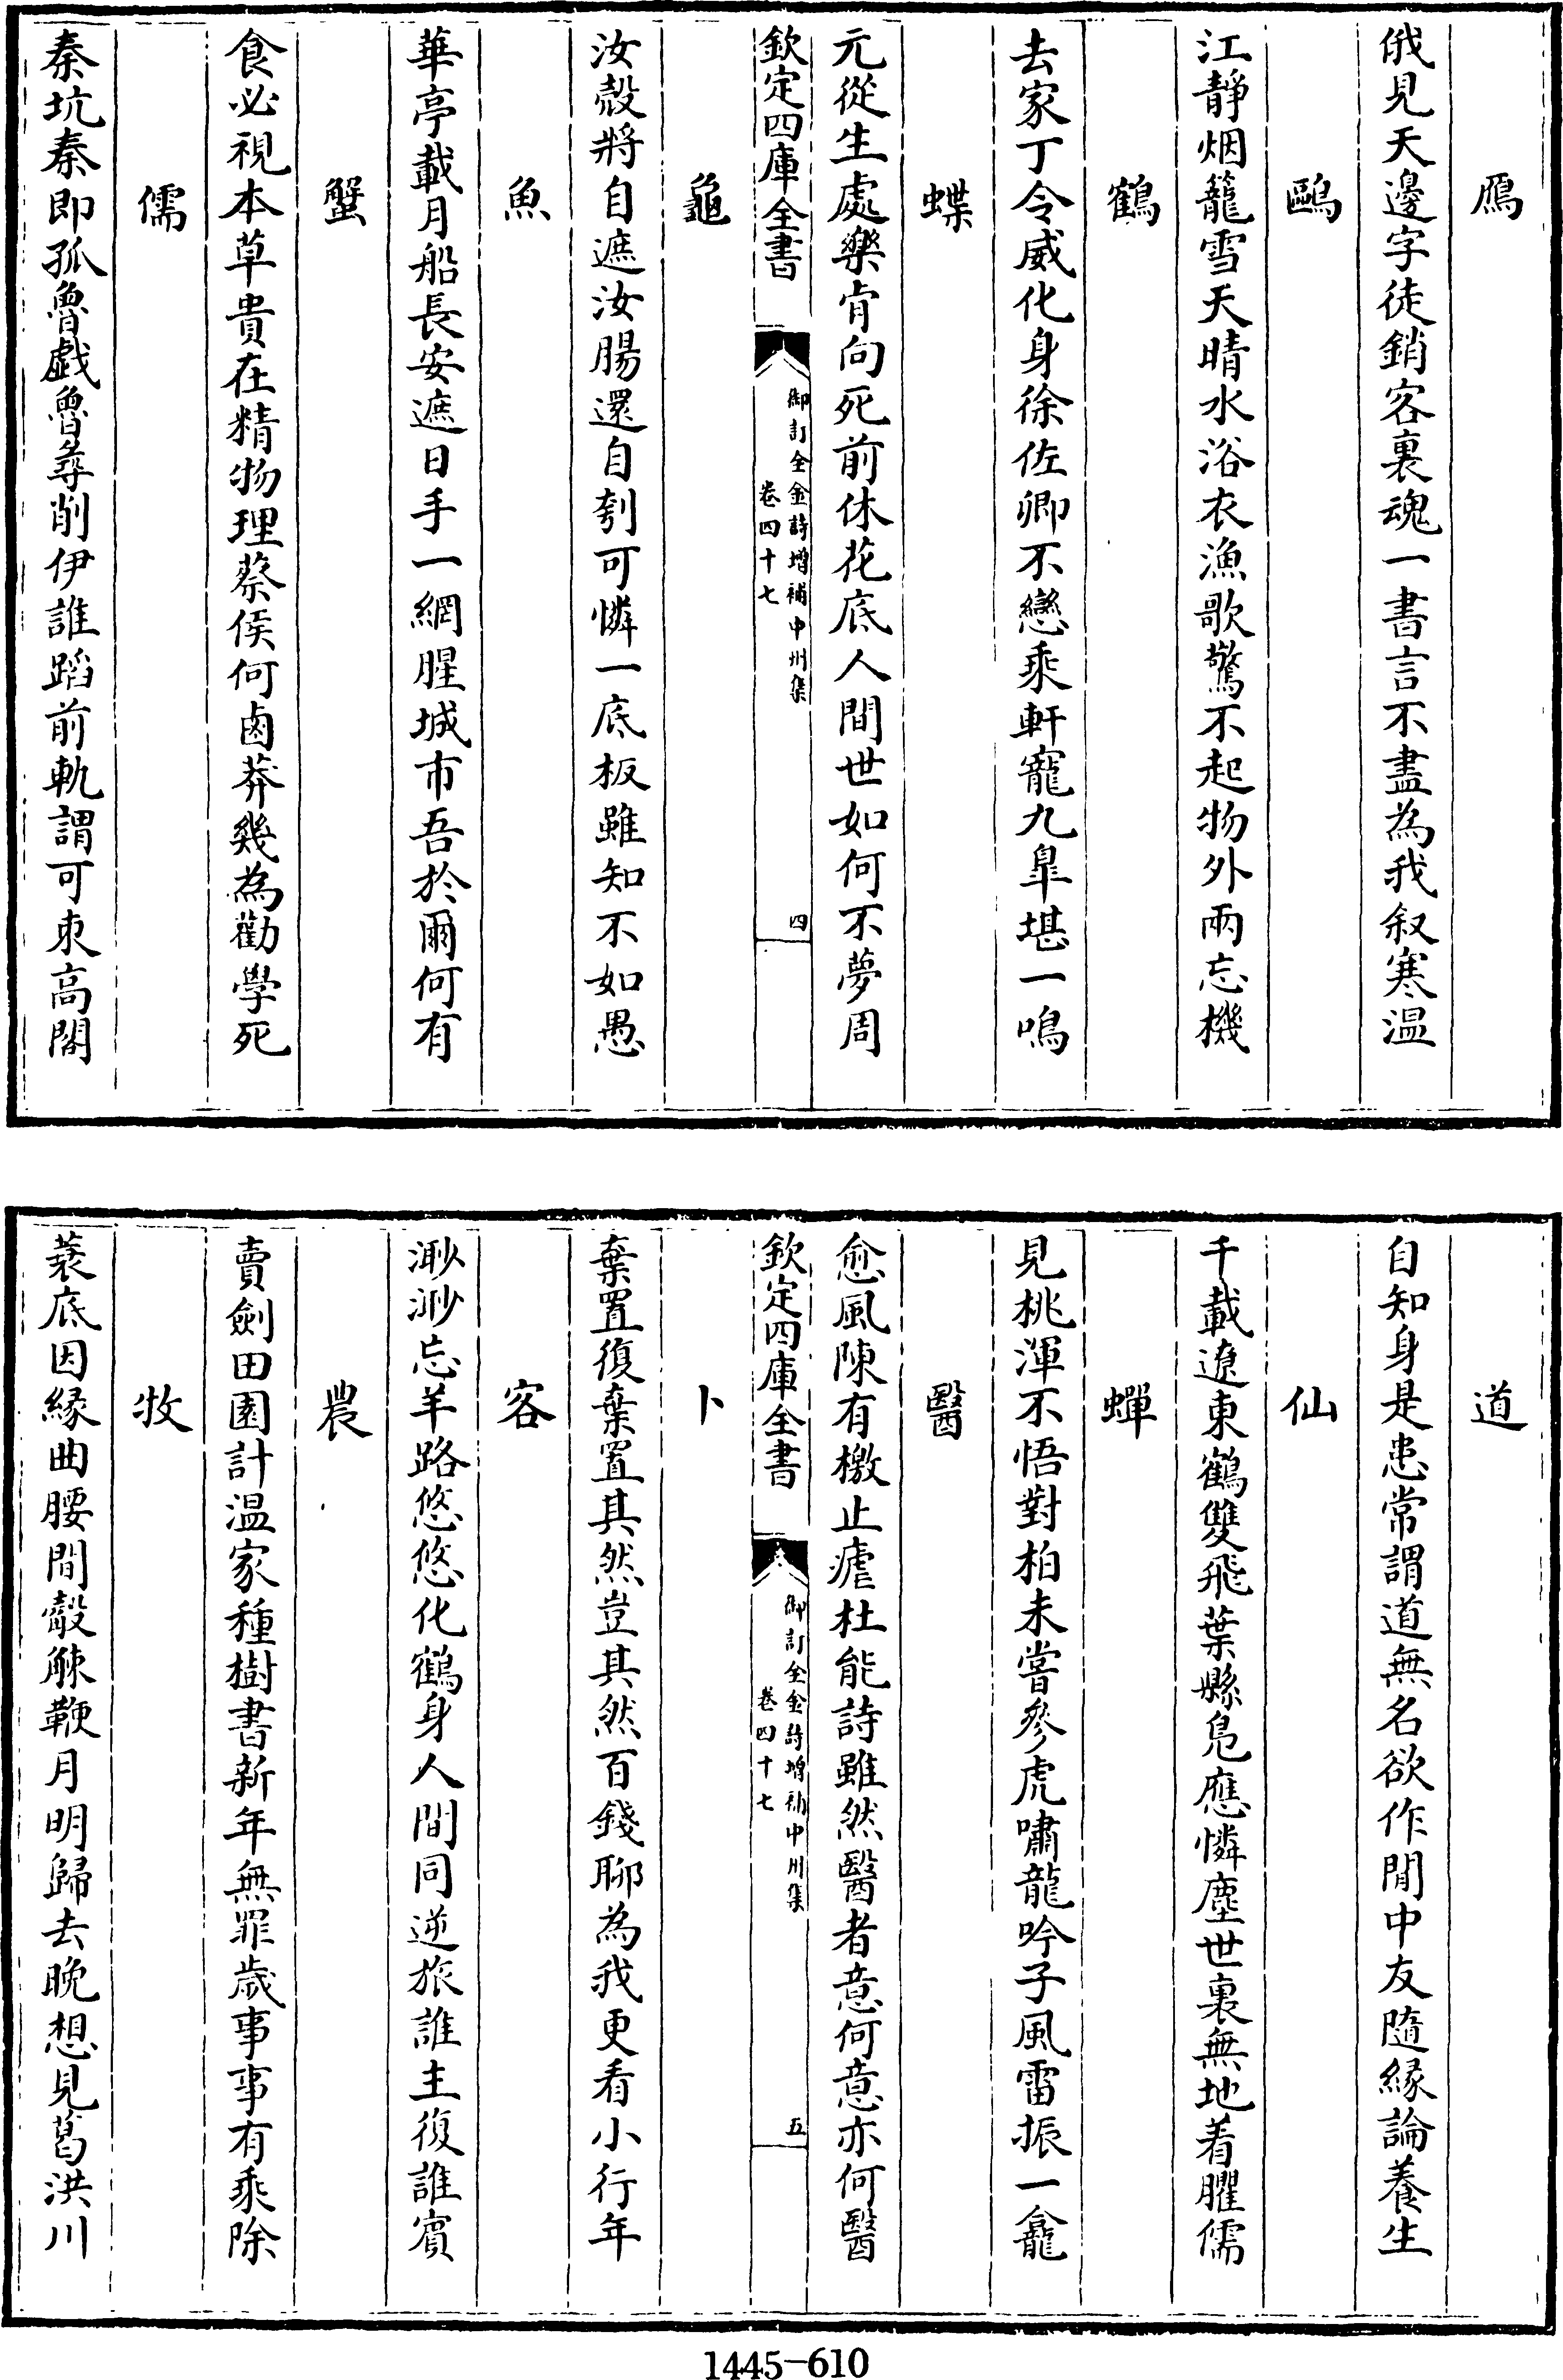 鴈
俄見天邊字徒銷客裏魂一書言不盡為我叙寒温
鷗
江靜烟籠雪天晴水浴衣漁歌驚不起物外兩忘機
鶴
去家丁令威化身徐佐卿不戀乘軒寵九臯堪一鳴
蝶
元從生處樂肯向死前休花底人間世如何不夢周
欽定四庫全書
御訂全金詩增補中州集
卷四十七
四
龜
汝殼將自遮汝腸還自刳可憐一底板雖知不如愚
魚
華亭載月船長安遮日手一網腥城市吾於爾何有
蟹
食必視本草貴在精物理蔡侯何鹵莽幾為勸學死
儒
秦坑秦即孤魯戲魯尋削伊誰蹈前軌謂可束高閣
道
自知身是患常謂道無名欲作閒中友隨緣論養生
仙
千載遼東鶴雙飛葉縣鳬應憐塵世裏無地着臞儒
蟬
見桃渾不悟對柏未嘗參虎嘯龍吟子風雷振一龕
醫
愈風陳有檄止瘧杜能詩雖然醫者意何意亦何醫
欽定四庫全書
御訂全金詩增補中州集
卷四十七
五
卜
棄置復棄置其然豈其然百錢聊為我更看小行年
客
渺渺忘羊路悠悠化鶴身人間同逆旅誰主復誰賓
農
賣劍田園計温家種樹書新年無罪歲事事有乘除
牧
蓑底因緣曲腰間觳觫鞭月明歸去晚想見葛洪川
1445-610